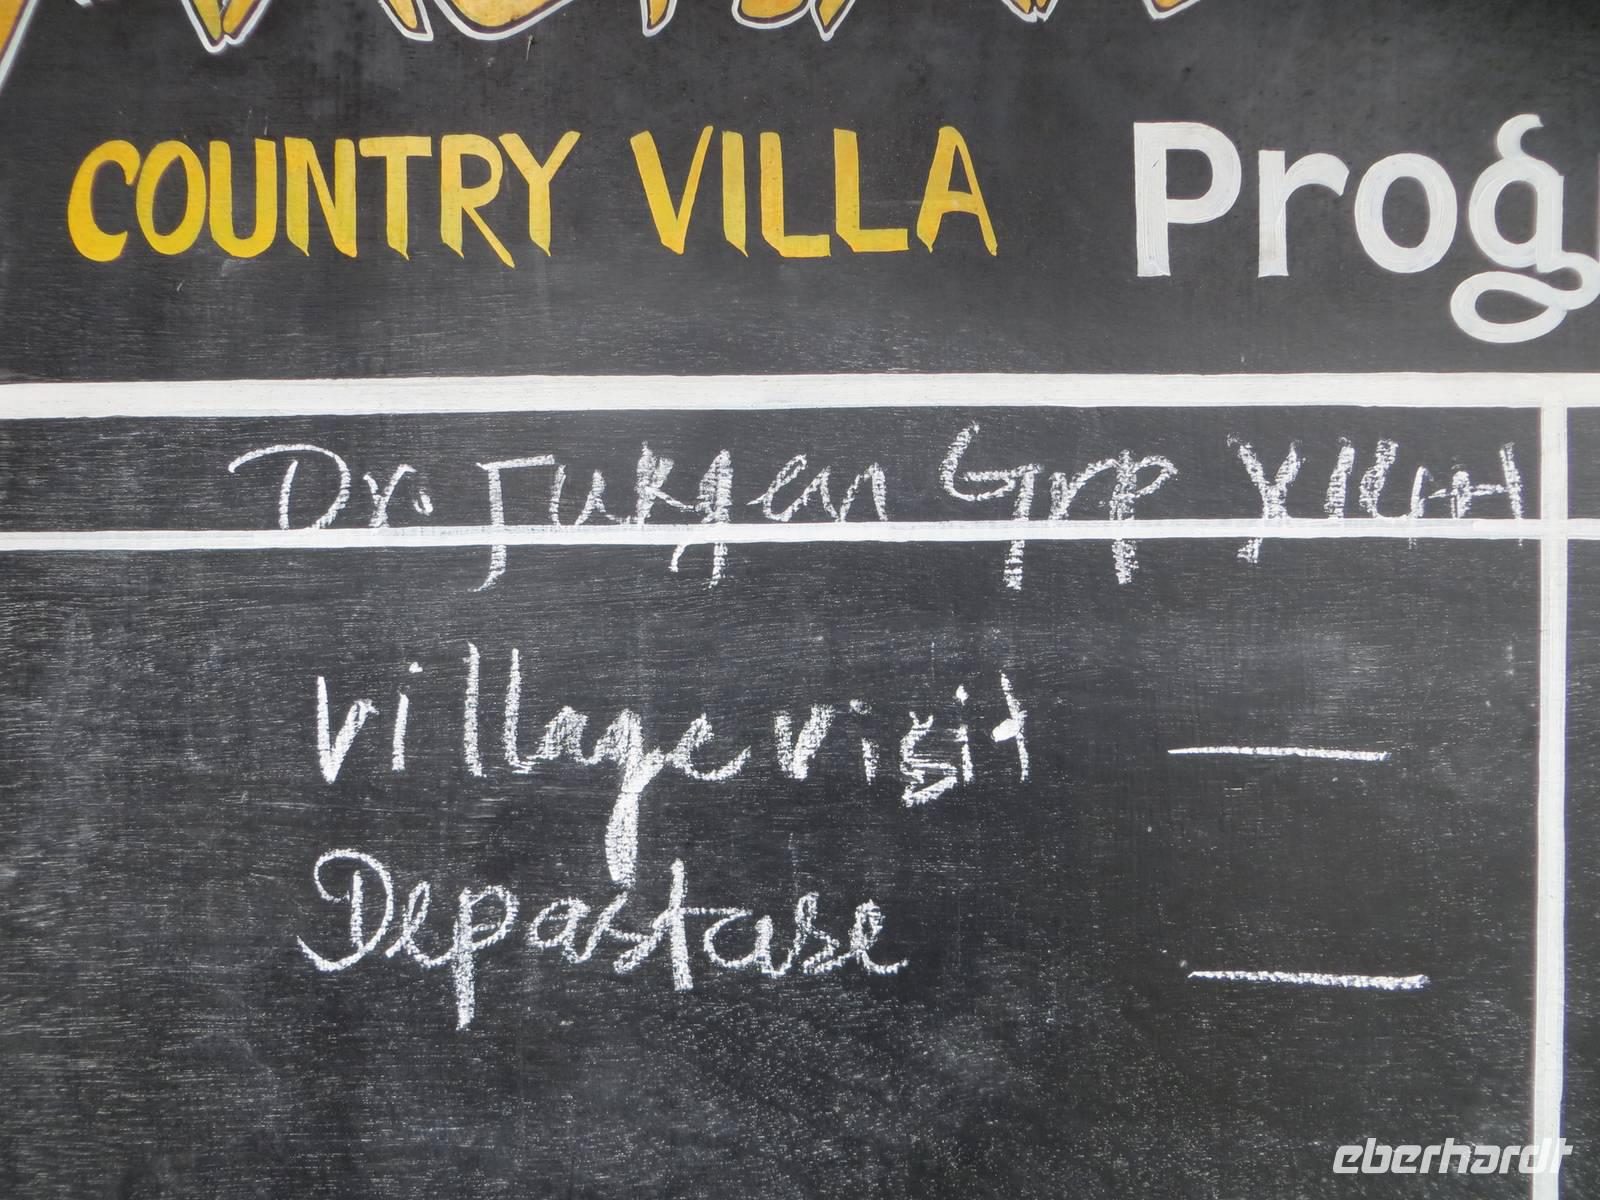 COUNTRY VILLA Prog
Dr. Jurgen Grp
village visit —
Depastase —
eberhardt